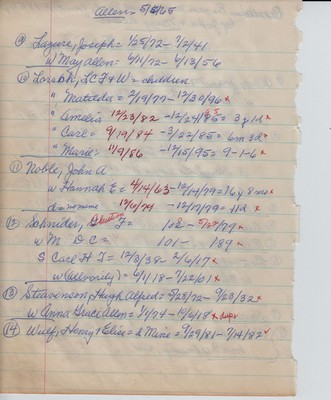 Allen - 5/5/65
⑨ Lazure, Joseph = 1/25/72 - 7/2/41
w May Allen = 6/11/72 - 4/13/56
⑩ Lorash, L C F & W = children
" Matilda = 2/19/77 - 12/30/96 x
" Amelia 12/23/82 - 12/24/85 = 3 y 1d x
" Carl = 9/19/84 - 3/22/85 = 6m 3d x
" Marie = 11/9/86 - 12/15/95 = 9-1-6 x
⑪ Noble, John A
w Hannah E = 4/14/63 - 12/14/79 = 16 y 8 mo x
d = no name 12/6/79 - 12/17/79 = 11d x
⑫ Schnider, F = 18 - 5/27/79 x
w M D C = 101 - 189 x
S Carl H F = 12/3/38 - 2/6/17 x
w = 6/1/18 - 7/22/01 x
⑬ Steavenson, Hugh Alfred = 5/28/72 - 9/23/32 x
w Anna Grace Allen = 1/1/74 - 10/6/18 x
⑭ Wulf, Henry & Elise = d Mine = 9/29/81 - 7/14/82 x